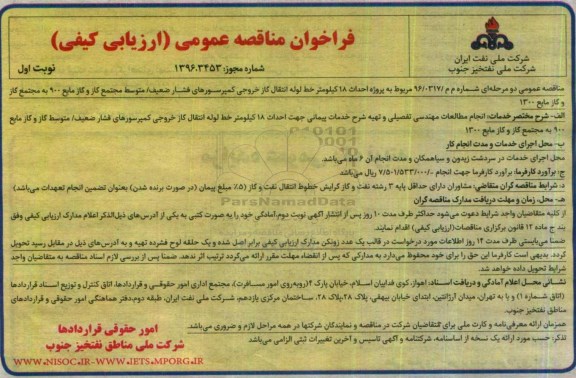 شرکت ملی نفت ایران
شرکت ملی نفتخیز جنوب
فراخوان مناقصه عمومی (ارزیابی کیفی)
شماره مجوز: ۱۳۹۶.۳۴۵۳
نوبت اول
مناقصه عمومی دو مرحله‌ای شماره م م /۹۶/۰۳۱۷ مربوط به پروژه احداث ۱۸ کیلومتر خط لوله انتقال گاز خروجی کمپرسورهای فشار ضعیف/ متوسط مجتمع گاز و گاز مایع ۹۰۰ به مجتمع گاز
و گاز مایع ۱۳۰۰
الف- شرح مختصر خدمات: انجام مطالعات مهندسی تفصیلی و تهیه شرح خدمات پیمانی جهت احداث ۱۸ کیلومتر خط لوله انتقال گاز خروجی کمپرسورهای فشار ضعیف/ متوسط گاز و گاز مایع
۹۰۰ به مجتمع گاز و گاز مایع ۱۳۰۰
ب- محل اجرای خدمات و مدت انجام کار
محل اجرای خدمات در سردشت زیدون و سیاهمکان و مدت انجام آن ۶ ماه می‌باشد
ج: برآورد کارفرما: برآورد کارفرما جهت انجام ۷/۵۰۱/۵۳۳/۰۰۰/- ریال می‌باشد
د: شرایط مناقصه گران متقاضی: مشاوران دارای حداقل پایه ۳ رشته نفت و گاز گرایش خطوط انتقال نفت و گاز (۵٪ مبلغ پیمان (در صورت برنده شدن) بعنوان تضمین انجام تعهدات می‌باشد)
هـ- محل، زمان و مهلت دریافت مدارک مناقصه گران
از کلیه متقاضیان واجد شرایط دعوت می‌شود حداکثر ظرف مدت ۱۰ روز پس از انتشار آگهی نوبت دوم، آمادگی خود را به صورت کتبی به یکی از آدرس‌های ذیل‌الذکر اعلام مدارک ارزیابی کیفی وفق
بند ج ماده ۱۲ قانون برگزاری مناقصات (ارزیابی کیفی) اقدام نمایند.
ضمنا می‌بایستی ظرف مدت ۱۴ روز اطلاعات مورد درخواست در قالب یک عدد زونکن مدارک ارزیابی کیفی برابر اصل شده و یک حلقه لوح فشرده تهیه و به آدرس‌های ذیل در مقابل رسید تحویل
گردد. بدیهی است کارفرما این حق را برای خود محفوظ می‌دارد به مدارکی که پس از انقضاء مهلت مقرر ارائه می‌گردد ترتیب اثر ندهد. ضمنا پس از بررسی لازم اسناد مناقصه به متقاضیان واجد
شرایط تحویل داده خواهد شد.
نشانی محل اعلام آمادگی و دریافت اسناد: اهواز، کوی فداییان اسلام، خیابان پارک ۲ (روبه‌روی امور مسافرت)، مجتمع اداری امور حقوقی و قراردادها، اتاق کنترل و توزیع اسناد قراردادها
(اتاق شماره ۱) و یا به تهران، میدان آرژانتین، ابتدای خیابان بیهقی، پلاک ۲۸، ساختمان مرکزی یازدهم، شرکت ملی نفت ایران، طبقه دوم، دفتر هماهنگی امور حقوقی و قراردادهای
مناطق نفتخیز جنوب.
همزمان ارائه معرفی‌نامه و کارت ملی برای متقاضیان شرکت در مناقصه و نمایندگان شرکتها در همه مراحل لازم و ضروری می‌باشد.
تذکر: حسب مورد ارائه یک نسخه از اساسنامه، شرکتنامه و آگهی تاسیس و آخرین تغییرات ثبتی الزامی می‌باشد
امور حقوقی قراردادها
شرکت ملی مناطق نفتخیز جنوب
WWW.NISOC.IR-WWW.IETS.MPORG.IR
ParsNamadData